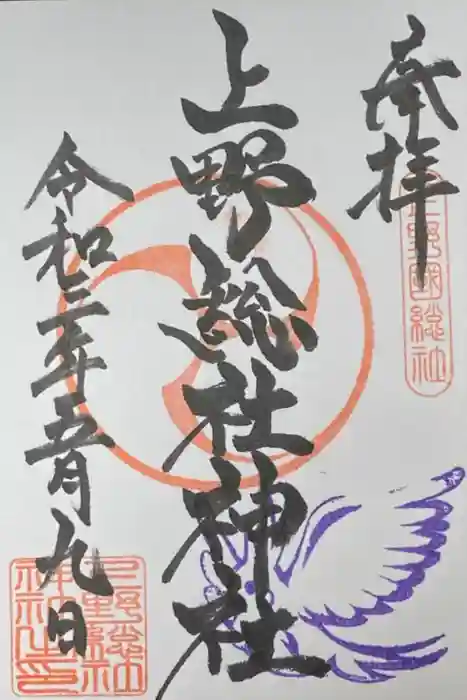 奉拝
上野國総社
上野総社神社
令和三年五月九日
上野総社
神社之印